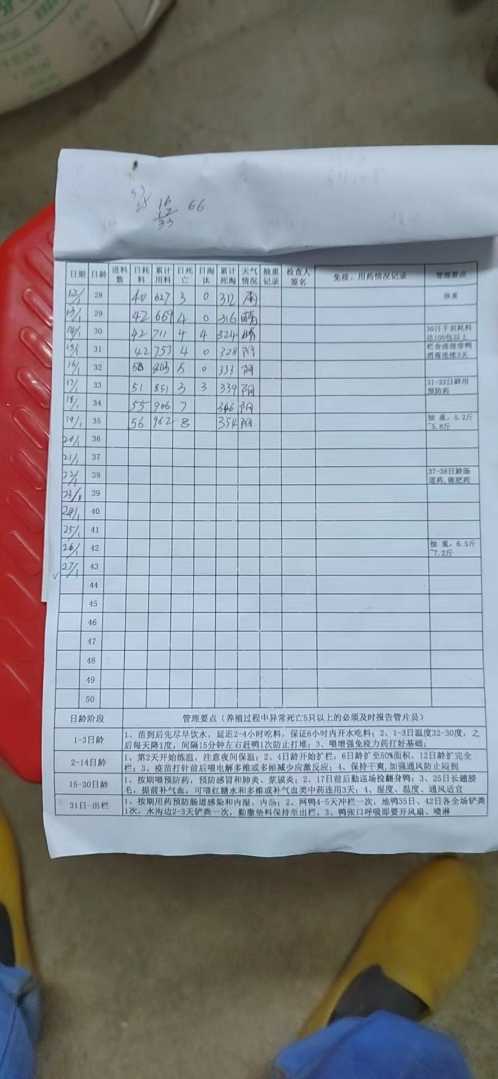 16
12
33
66
日期 日龄 进料数 日耗料 累计用料 日死亡 日淘汰 累计死淘 天气情况 抽重记录 检查人签名 免疫、用药情况记录 管理要点
12/1 28 40 627 3 0 312 雨
13/1 29 42 669 4 0 316 晴
14/1 30 42 711 4 4 324 30日千只耗料达100包以上
15/1 31 42 753 4 0 328 阴
16/1 32 5 0 333 阴
17/1 33 51 851 3 3 339 阴 31-33日龄用预防药
18/1 34 55 906 7 346 阴
19/1 35 56 962 8 354 阴 抽重:5.2斤~5.8斤
20/1 36
21/1 37
22/1 38 37-38日龄肠道药、催肥药
23/1 39
24/1 40
25/1 41
26/1 42 抽重:6.5斤~7.2斤
27/1 43
44
45
46
47
48
49
50
日龄阶段 管理要点(养殖过程中异常死亡5只以上的必须及时报告管片员)
1-3日龄 1、苗到后先尽早饮水,延迟2-4小时吃料,保证6小时内开水吃料;2、1-3日温度32-30度,之后每天降1度,间隔15分钟左右赶鸭1次防止打堆;3、喂增强免疫力药打好基础;
2-14日龄 1、第2天开始练温,注意夜间保温;2、4日龄开始扩栏,6日龄扩至50%面积,12日龄扩完全栏;3、疫苗打针前后喂电解多维或多维减少应激反应;4、保持干爽,加强通风防止闷热
15-30日龄 1、按期喂预防药,预防感冒和肺炎、浆膜炎;2、17日前后勤巡场救翻身鸭;3、25日长翅膀毛,提前补气血,可喂红糖水和多维或补气血类中药连用3天;4、湿度、温度、通风适宜
31日-出栏 1、按期用药预防肠道感染和内湿、内毒;2、网鸭4-5天冲栏一次,地鸭35日、42日各全场铲粪1次,水沟边2-3天铲粪一次,勤撒垫料保持至出栏;3、鸭张口呼吸即要开风扇、喷淋